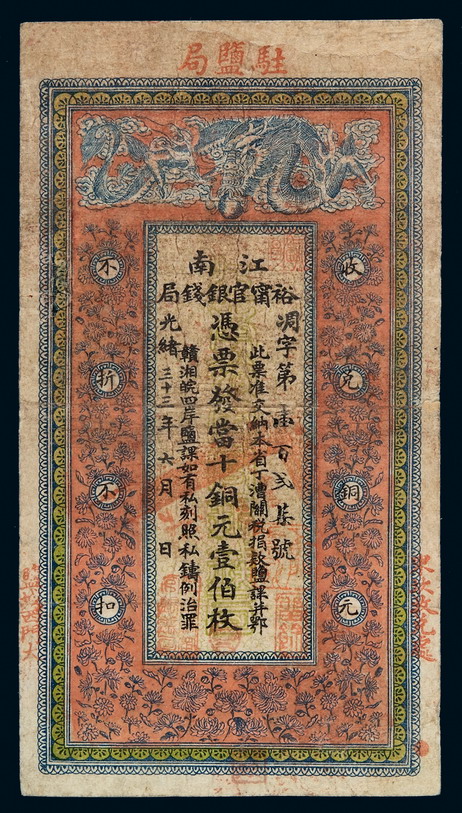 駐鹽局
江南
裕甯官銀錢局
收兌銅元
不折不扣
凋字第壹百弍柒號
此票准交納本省丁漕關稅捐款鹽課并鄂
憑票發當十銅元壹佰枚
贛湘皖四岸鹽課如有私刻照私鑄例治罪
光緒三十三年六月 日